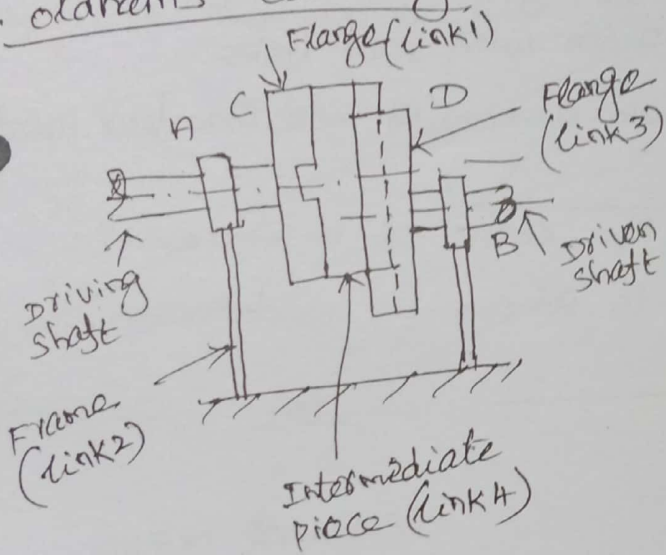 oldham's
Flange (link 1)
C
D
A
Flange
(link 3)
B
Driven
shaft
Driving
shaft
Frame
(link 2)
Intermediate
piece (link 4)